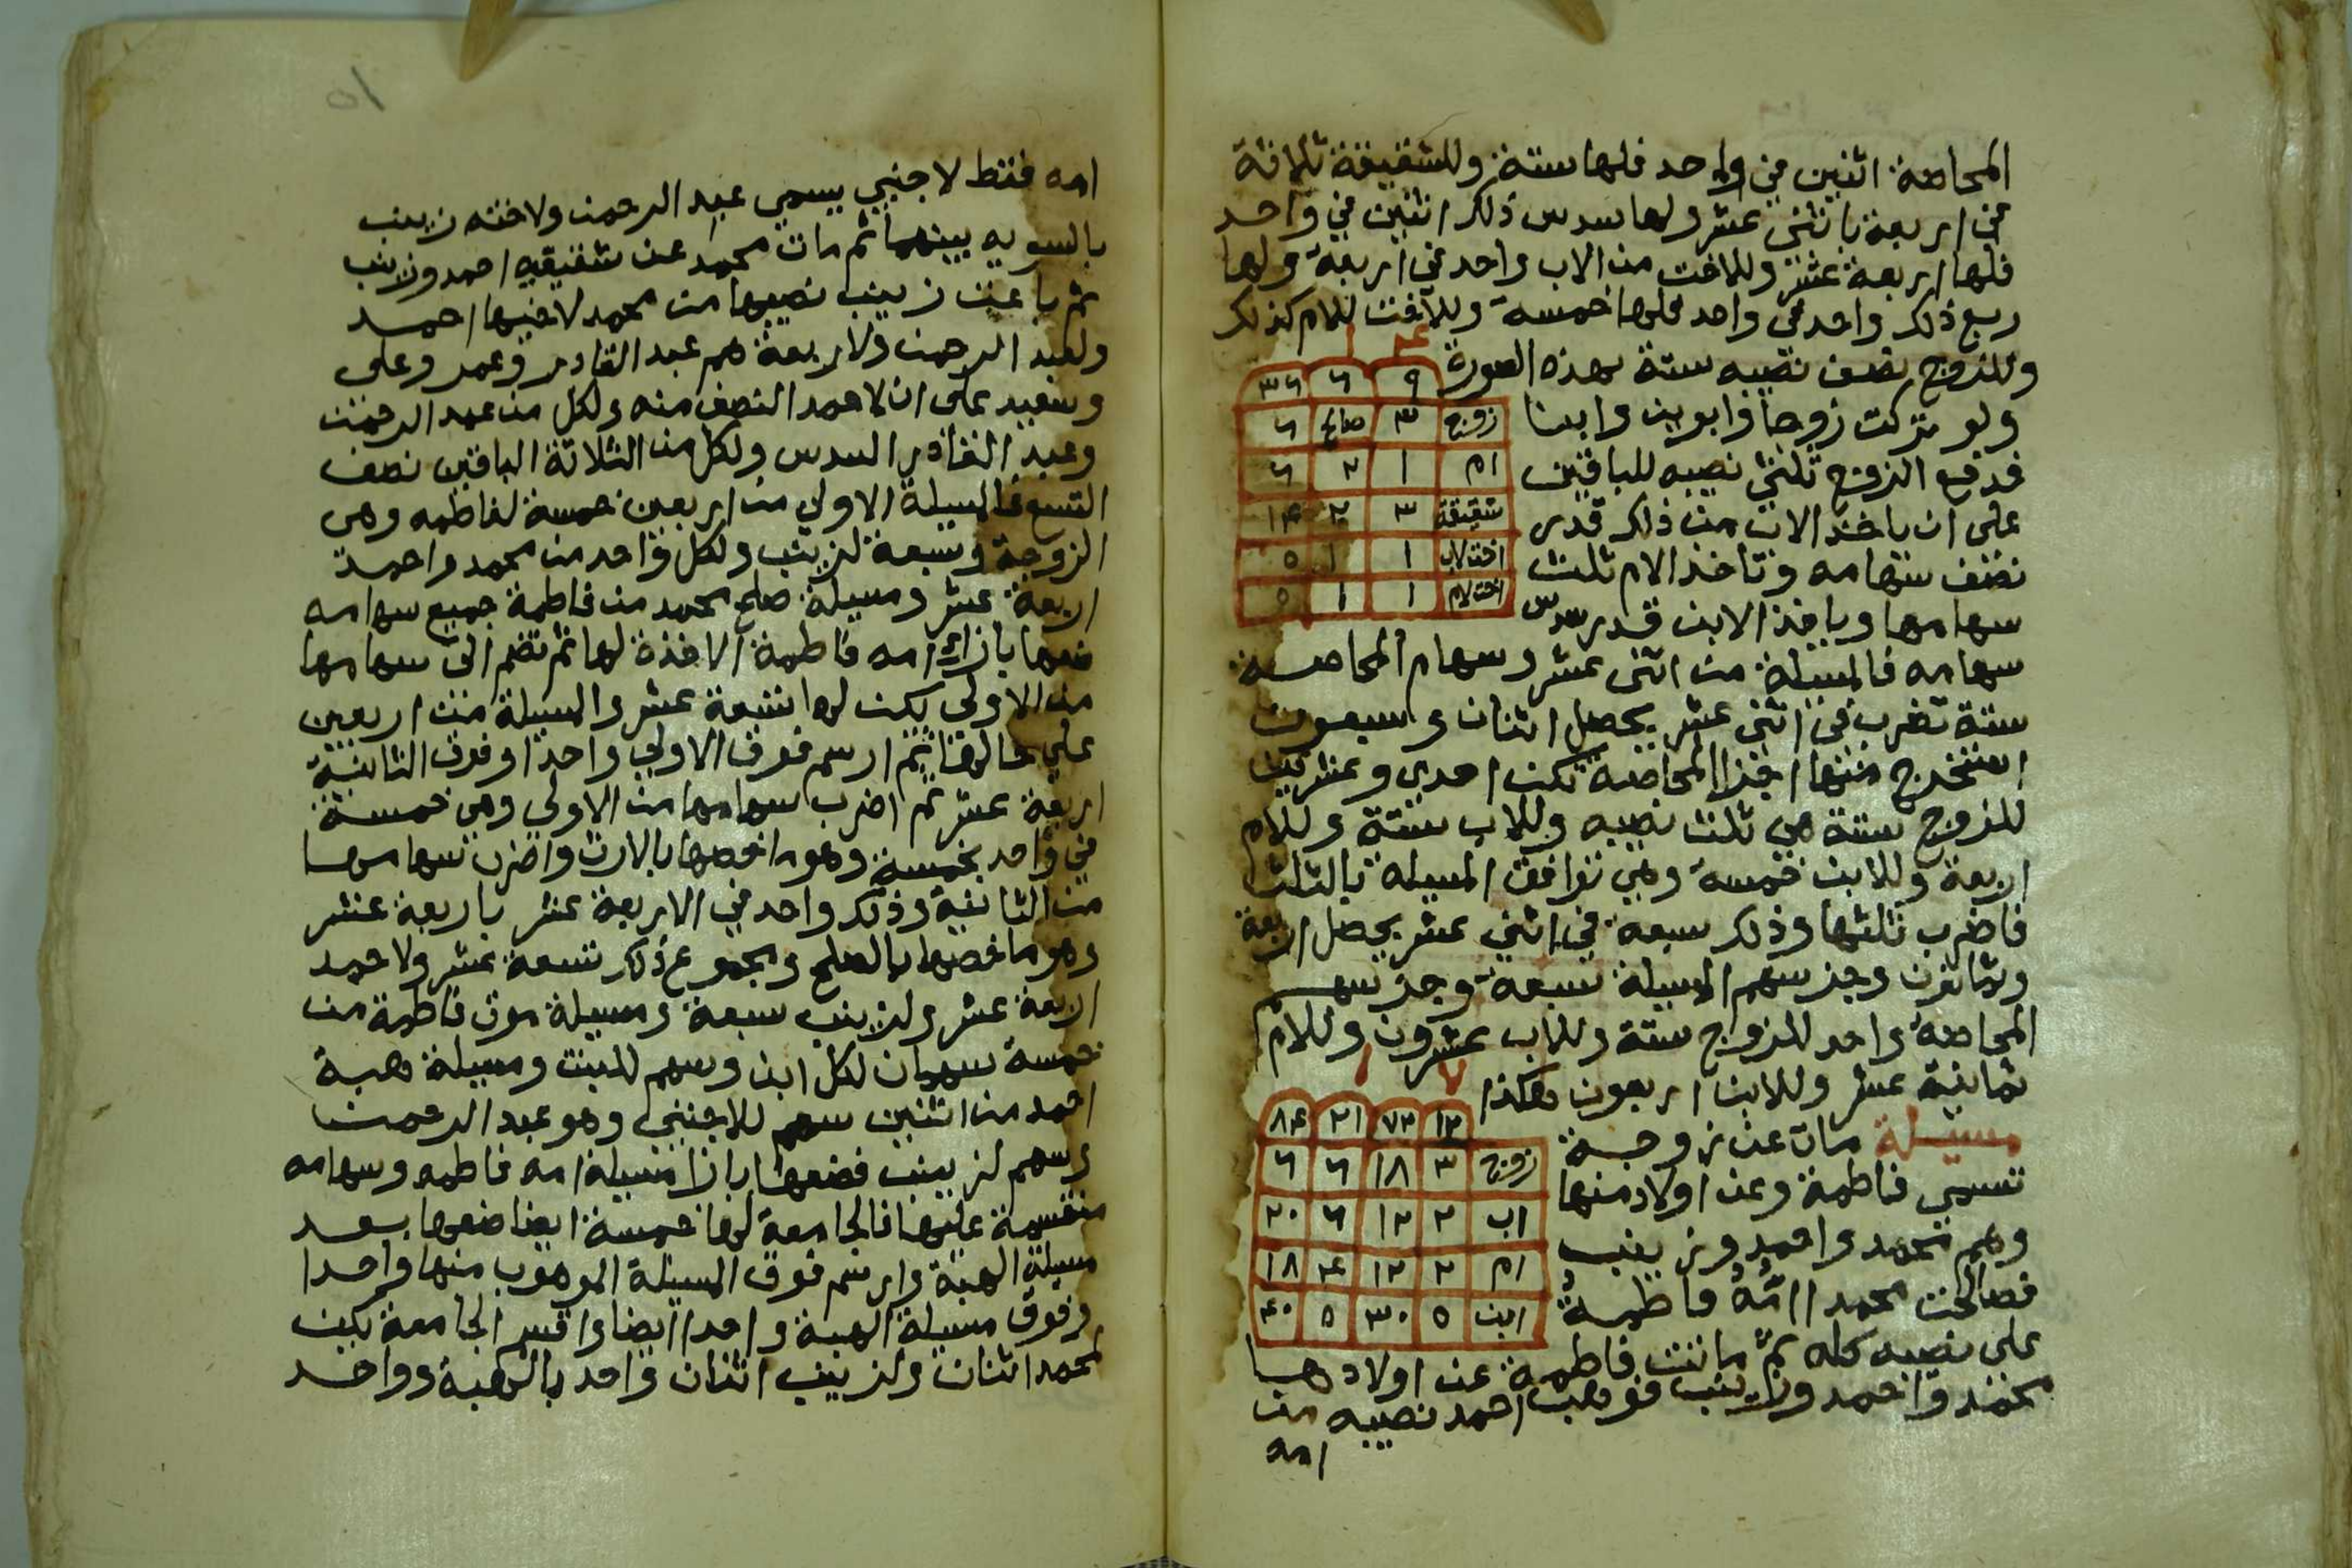 المحاصة اثنين في واحد فلها ستة وللشقيقة ثلاثة
في اربعة باثني عشر ولها سدس ذلك اثنين في واحد
فلها اربعة عشر وللاخت من الاب واحد في اربعة ولها
ربع ذلك واحد في واحد فلها خمسة وللاخت للام كذلك
وللزوج نصف نصيبه ستة بهذه الصورة
٤ ١
٩ ٦ ٣٦
زوج ٣ صالح ٦
ام ١ ٢ ٦
شقيقة ٣ ٢ ١٤
اخت لاب ١ ١ ٥
اخت لام ١ ١ ٥
ولو تركت زوجا وابوين وابنا
فدفع الزوج ثلثي نصيبه للباقين
على ان ياخذ الاب من ذلك قدر
نصف سهامه وتاخذ الام ثلث
سهامها وياخذ الابن قدر سدس
سهامه فالمسيلة من اثنى عشر وسهام المحاصة
ستة تضرب في اثنى عشر يحصل اثنان وسبعون
استخرج منها اجزا المحاصة تكن احدى وعشرين
للزوج ستة هي ثلث نصيبه وللاب ستة وللام
اربعة وللابن خمسة وهي توافق المسيلة بالثلث
فاضرب ثلثها وذلك سبعة في اثني عشر يحصل اربعة
وثمانون وجز سهم المسيلة سبعة وجز سهم
المحاصة واحد للزوج ستة وللاب عشرون وللام
ثمانية عشر وللابن اربعون هكذا
٧ ١
١٢ ٧٢ ٢١ ٨٤
زوج ٣ ١٨ ٦ ٦
اب ٢ ١٢ ٦ ٢٠
ام ٢ ١٢ ٤ ١٨
ابن ٥ ٣٠ ٥ ٤٠
مسيلة مات عن زوجة
تسمى فاطمة وعن اولاد منها
وهم محمد واحمد وزينب
فصالحت محمد اامه فاطمة
على نصيبه كله ثم ماتت فاطمة عن اولادها
محمد واحمد وزينب فوهب احمد نصيبه من
امه
١٥
امه فقط لاجنبي يسمي عبد الرحمن ولاخته زينب
بالسويه بينهما ثم مات محمد عن شقيقيه احمد وزينب
ثم باعت زينب نصيبها من محمد لاخيها احمد
ولعبد الرحمن ولاربعة هم عبد القادر وعمر وعلى
وسعيد على ان لاحمد النصف منه ولكل من عبد الرحمن
وعبد القادر السدس ولكل من الثلاثة الباقين نصف
التسع فالمسيلة الاولى من اربعين خمسة لفاطمه وهى
الزوجة وسبعة لزينب ولكل واحد من محمد واحمد
اربعة عشر ومسيلة صلح محمد من فاطمة جميع سهامه
ضعها بازاء امه فاطمة الاخذة لها ثم تضم الى سهامها
من الاولى يكن لها تسعة عشر والمسيلة من اربعين
على حالها ثم ارسم فوق الاولى واحدا وفوق الثانية
اربعة عشر ثم اضرب سهامها من الاولى وهي خمسة
في واحد بخمسة وهو ما خصها بالارث واضرب سهامها
من الثانية وذلك واحد في الاربعة عشر باربعة عشر
وهو ما خصها بالصلح ومجموع ذلك تسعة عشر ولاحمد
اربعة عشر ولزينب سبعة ومسيلة موت فاطمة من
خمسة سهمان لكل ابن وسهم للبنت ومسيلة هبة
احمد من اثنين سهم للاجنبي وهو عبد الرحمن
وسهم لزينب فضعها بازا مسيلة امه فاطمه وسهامه
منقسمة عليها فالجامعة لها خمسة ايضا ضعها بعد
مسيلة الهبة وارسم فوق المسيلة الموهوب منها واحدا
وفوق مسيلة الهبة واحدا ايضا واقسم الجامعة يكن
لمحمد اثنان ولزينب اثنان واحد بالهبة وواحد